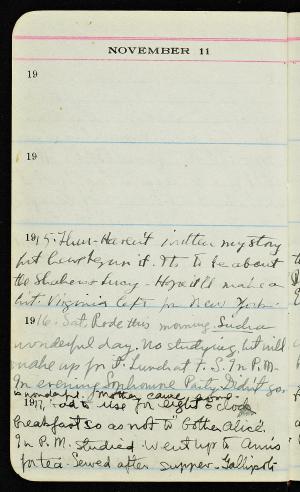 NOVEMBER 11
19
19
1915. Thurs - Haven't written my story
but have begun it. It's to be about
the Shakers & Lucy - Hope it'll make a
hit. Virginia left for New York.
1916. Sat. Rode this morning. Such a
wonderful day. No studying, but will
make up for it. Lunch at T. S. In P.M.
In evening Party. Didn't go.
is wonderful. Mother came along.
1917. Had to use for eight o'clock
breakfast so as not to "bother Alice."
In P.M. studied. Went up to Ann's
for tea. Sewed after supper. Gallipoli